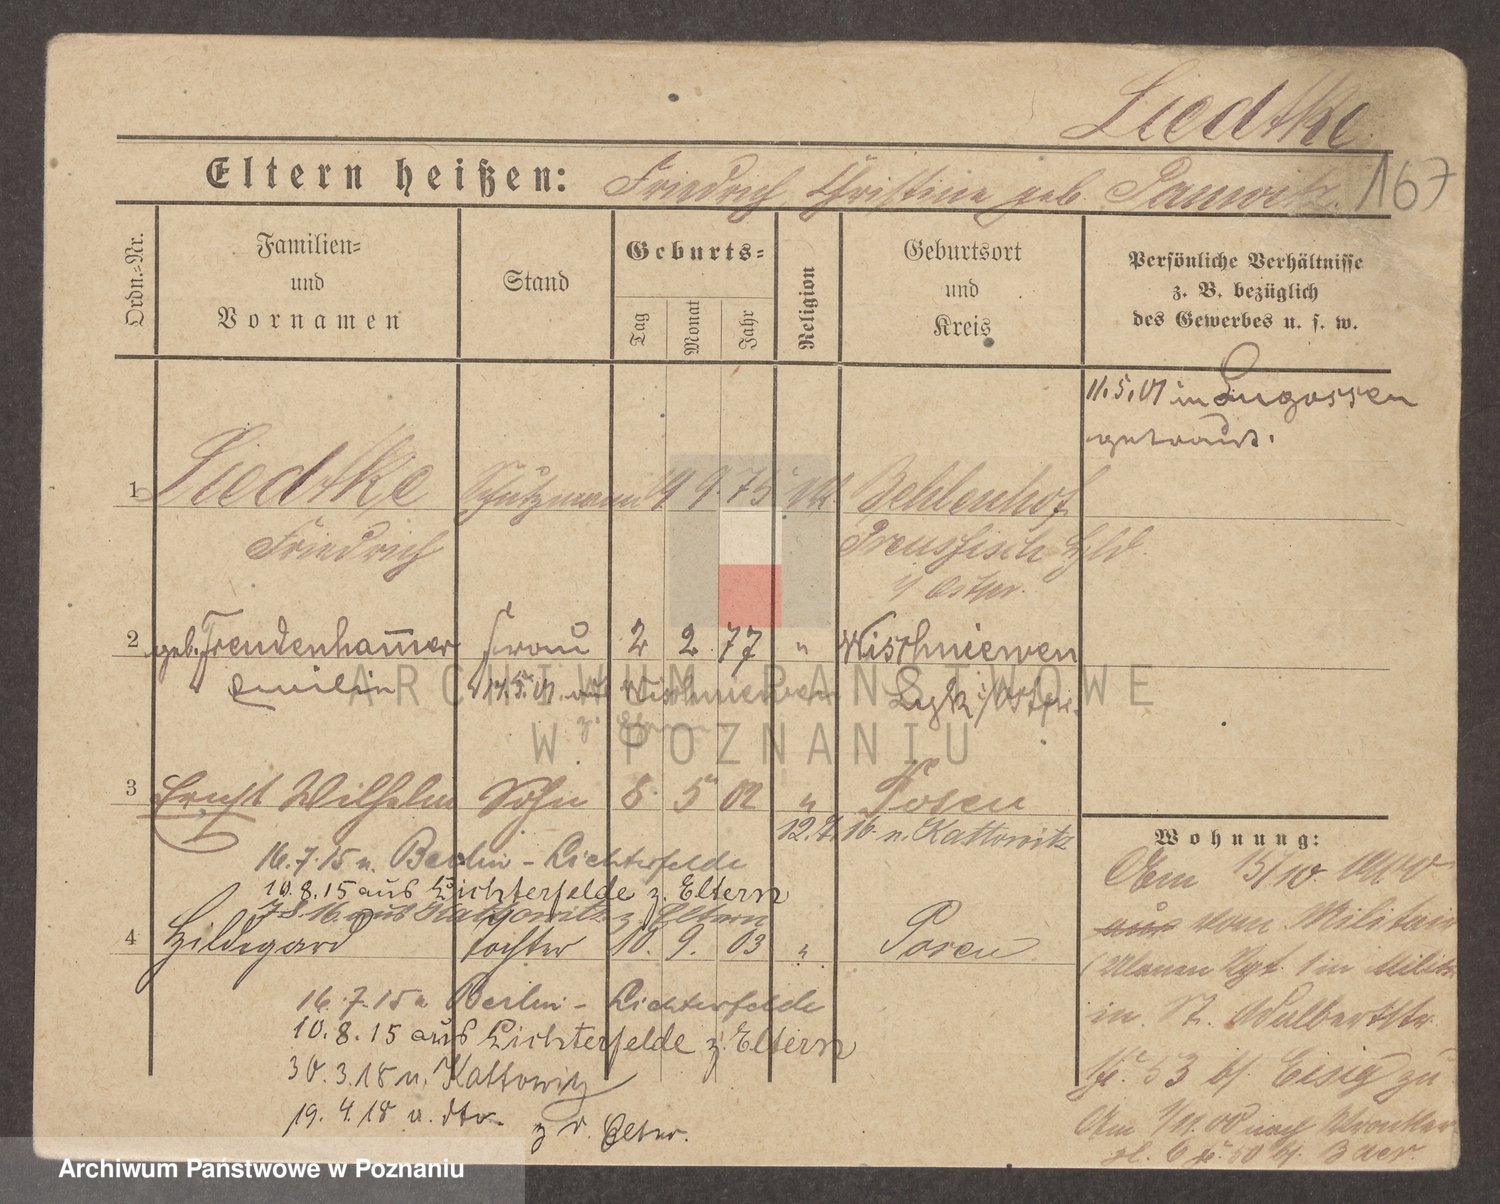 Liedtke
167
Eltern heißen: Friedrich, Christine geb.
Ordn.=Nr.
Familien=
und
Vornamen
Stand
Geburts=
Tag
Monat
Jahr
Religion
Geburtsort
und
Kreis
Persönliche Verhältnisse
z. B. bezüglich
des Gewerbes u. s. w.
11.5.01 in
getraut.
1 Liedtke Schutzmann 9. 75
Friedrich Preussisch Hld
i/ Ostpr.
2 geb. Freudenham̄er Frau 2 2. 77 " Wischniewen
Emilie 17.5.01. aus Wischniewen Lyk i/Ostpr.
3 Ernst Wilhelm Sohn 8. 5 02 " Posen
12.7.16 n. Kattowitz
16.7.15 n. Berlin - Lichterfelde
10.8.15 aus Lichterfelde z. Eltern
7.8.16 aus Kattowitz z. Eltern
4 Hildegard Tochter 10. 9. 03 " Posen
16.7.15 n Berlin - Lichterfelde
10.8.15 aus Lichterfelde z. Eltern
30.3.18 n. Kattowitz
19.4.18 v. dto. z d. Elter.
Wohnung:
Am 15/10
aus vom Militair
in St. Adalbertstr.
53 b/ zu
Am 1/11. 00 nach Wronker
pl. 6 b/. Baer.
ARCHIWUM PAŃSTWOWE
W POZNANIU
Archiwum Państwowe w Poznaniu